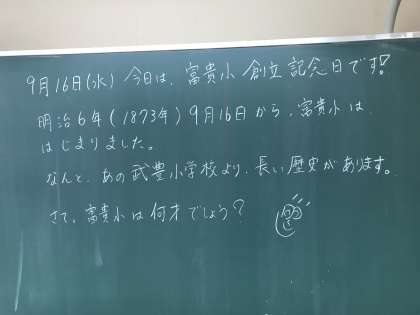 9月16日(水) 今日は、富貴小 創立記念日です!
明治6年(1873年)9月16日から、富貴小は、
はじまりました。
なんと、あの武豊小学校より、長い歴史があります。
さて、富貴小は何才でしょう?